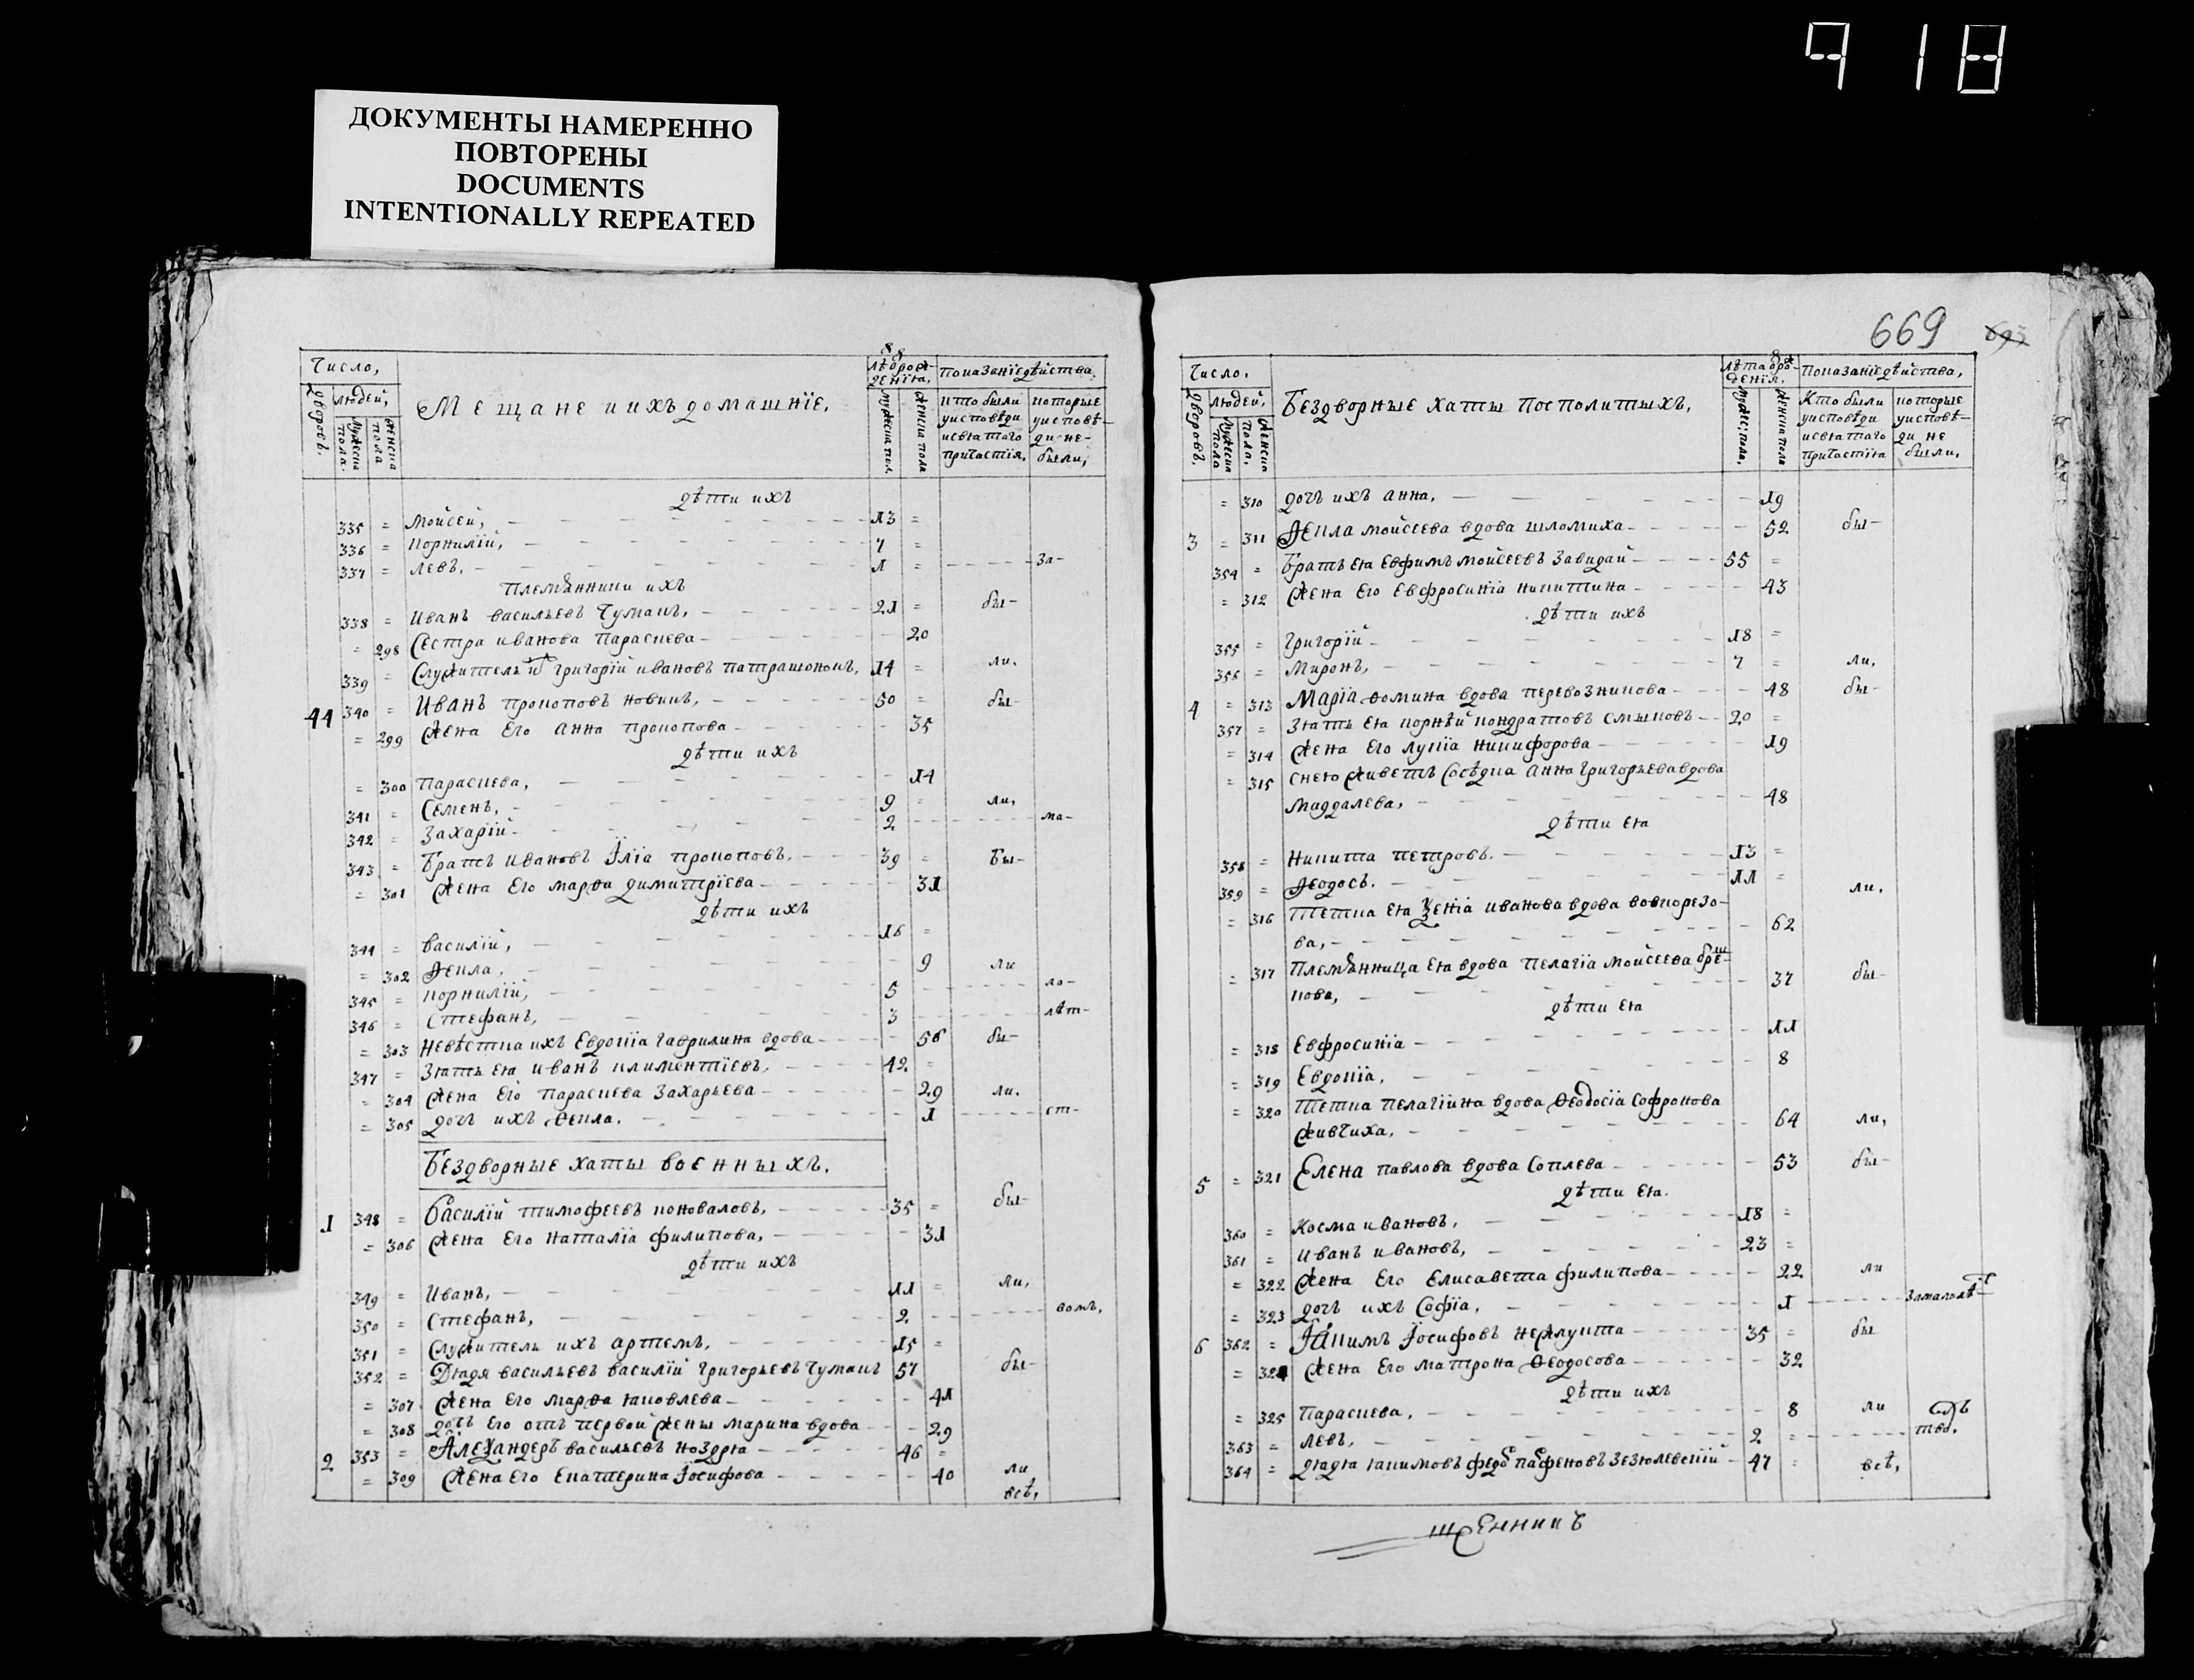 918
ДОКУМЕНТЫ НАМЕРЕННО
ПОВТОРЕНЫ
DOCUMENTS
INTENTIONALLY REPEATED
Число,
дворовъ.
людей,
мужеска пола.
женска пола
Мещане и ихъ домашнїе.
лѣ от рожденїя.
мужеска пол.
женска пола
показанїе дѣйства.
кто были у исповѣди и святаго причастїя.
которые у исповѣди не были,
дѣти ихъ
335 = Мойсей, 13 =
336 = Корнилїй, 7 =
337 = Левъ. 1 = За-
племянники ихъ
338 = Иванъ васильевъ Чумакъ, 21 = бы-
= 298 Сестра иванова Параскева 20
339 = Служитель их Григорїй ивановъ патрашонокъ, 14 = ли.
44 340 = Иванъ прокоповъ новикъ, 50 = бы-
= 299 Жена его Анна прокопова 35
дѣти ихъ
= 300 Параскева, 14
341 = Семенъ, 9 = ли,
342 = Захарїй 2 ма-
343 = Братъ ивановъ Їлїа прокоповъ. 39 = Бы-
= 301 Жена его марѳа димитрїева 31
дѣти ихъ
344 = Василїй, 16 =
= 302 Ѳекла, 9 ли
345 = Корнилїй, 5 ло-
346 = Стефанъ, 3 лѣт-
= 303 Невѣстка ихъ Евдокїа Гаврилина вдова 56 бы-
347 = Зять ея иванъ климентїевъ, 42 =
= 304 Жена его Параскева Захарьева 29 ли.
= 305 дочь ихъ Ѳекла. 1 ст-
Бездворные хаты военныхъ.
1 348 = Василїй тимофеевъ коноваловъ, 35 = бы-
= 306 Жена его Наталїа филипова, 31
дѣти ихъ
349 = Иванъ, 11 = ли,
350 = Стефанъ, 2 вомъ,
351 = Служитель ихъ артемъ, 15 =
352 = Дядя васильевъ василїй Григорьевъ Чумакъ 57 бы-
= 307 Жена его марѳа яковлева 41
= 308 дочь его отъ первой жены марина вдова 29
2 353 = Алеѯандеръ васильевъ ноздря 46 =
= 309 Жена его Екатерина Їосифова 40 ли
всѣ,
669
Число.
дворовъ.
людей
мужеска пола
женска пола.
Бездворные хаты посполитыхъ.
лѣта от рожденїя.
мужес: пола.
женска пола
показанїе дѣйства,
Кто были у исповѣди и святаго причастїя
которые у исповѣди не были,
= 310 дочъ ихъ анна, 19
3 = 311 Ѳекла мойсеева вдова шломиха 52 бы-
354 = Братъ ея Евфимъ мойсеевъ Завидай 55 =
= 312 Жена его Евфросинїа никитина 43
дѣти ихъ
355 = Григорїй 18 =
356 = Миронъ, 7 = ли,
4 = 313 Марїа ѳомина вдова перевозникова 48 бы-
357 = Зять ея корнѣй кондратовъ смыковъ 20 =
= 314 Жена его лукїа никифорова 19
= 315 снею живетъ сосѣдка анна григорьева вдова
маддалева, 48
дѣти ея
358 = Никита петровъ. 13 =
359 = Ѳеодосъ. 11 = ли.
= 316 Тетка ея Ѯенїа иванова вдова вовкорезо-
ва, 62
= 317 Племянница ея вдова пелагїа мойсеева
кова, 37 бы-
дѣти ея
= 318 Евфросинїа 11
= 319 Евдокїа, 8
= 320 Тетка пелагїина вдова Ѳеодосїа софронова
живчиха, 64 ли,
5 = 321 Елена павлова вдова соплева 53 бы-
дѣти ея.
360 = Косма ивановъ, 18 =
361 = Иванъ ивановъ, 23 =
= 322 Жена его Елисавета филипова 22 ли
= 323 дочь ихъ Софїа, 1 Замалолѣт
6 362 = Їакимъ Їосифовъ нежлукта 35 = бы
= 324 Жена его матрона Ѳеодосова 32
дѣти ихъ
= 325 Параскева, 8 ли
363 = Левъ, 2 = тво.
364 = дядя якимовъ федо пафеновъ Зезюлевскїй 47 = всѣ,
щенникъ